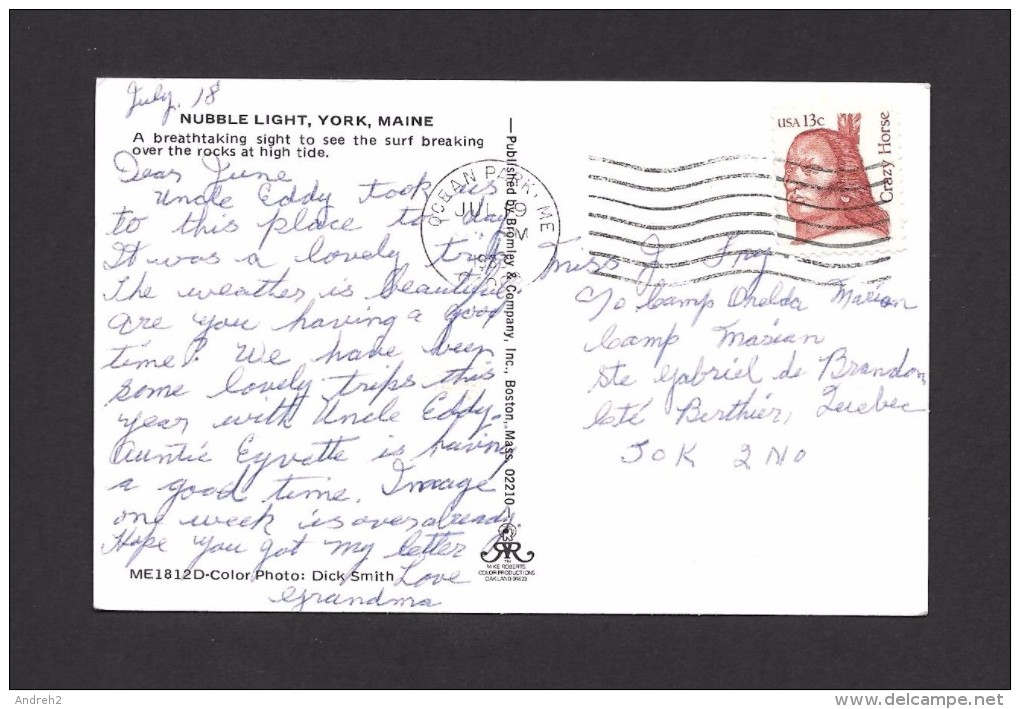 July. 18
NUBBLE LIGHT, YORK, MAINE
A breathtaking sight to see the surf breaking
over the rocks at high tide.
Dear June
Uncle Eddy took us
to this place to day
It was a lovely trip
The weather is beautiful.
are you having a good
time? We have been
some lovely trips this
year with Uncle Eddy.
Auntie Eyvette is having
a good time. Image
one week is over already.
Hope you got my letter
ME1812D-Color Photo: Dick Smith Love
Grandma
—Published by Bromley & Company, Inc., Boston, Mass. 02210—
MIKE ROBERTS
COLOR PRODUCTIONS
OAKLAND
OCEAN PARK, ME
JUL
USA 13c
Crazy Horse
Miss J.
c/o Camp Marian
Camp Marian
Ste Gabriel de Brandon,
Cté Berthier, Quebec
J0K 2N0
Andreh2
www.delcampe.net